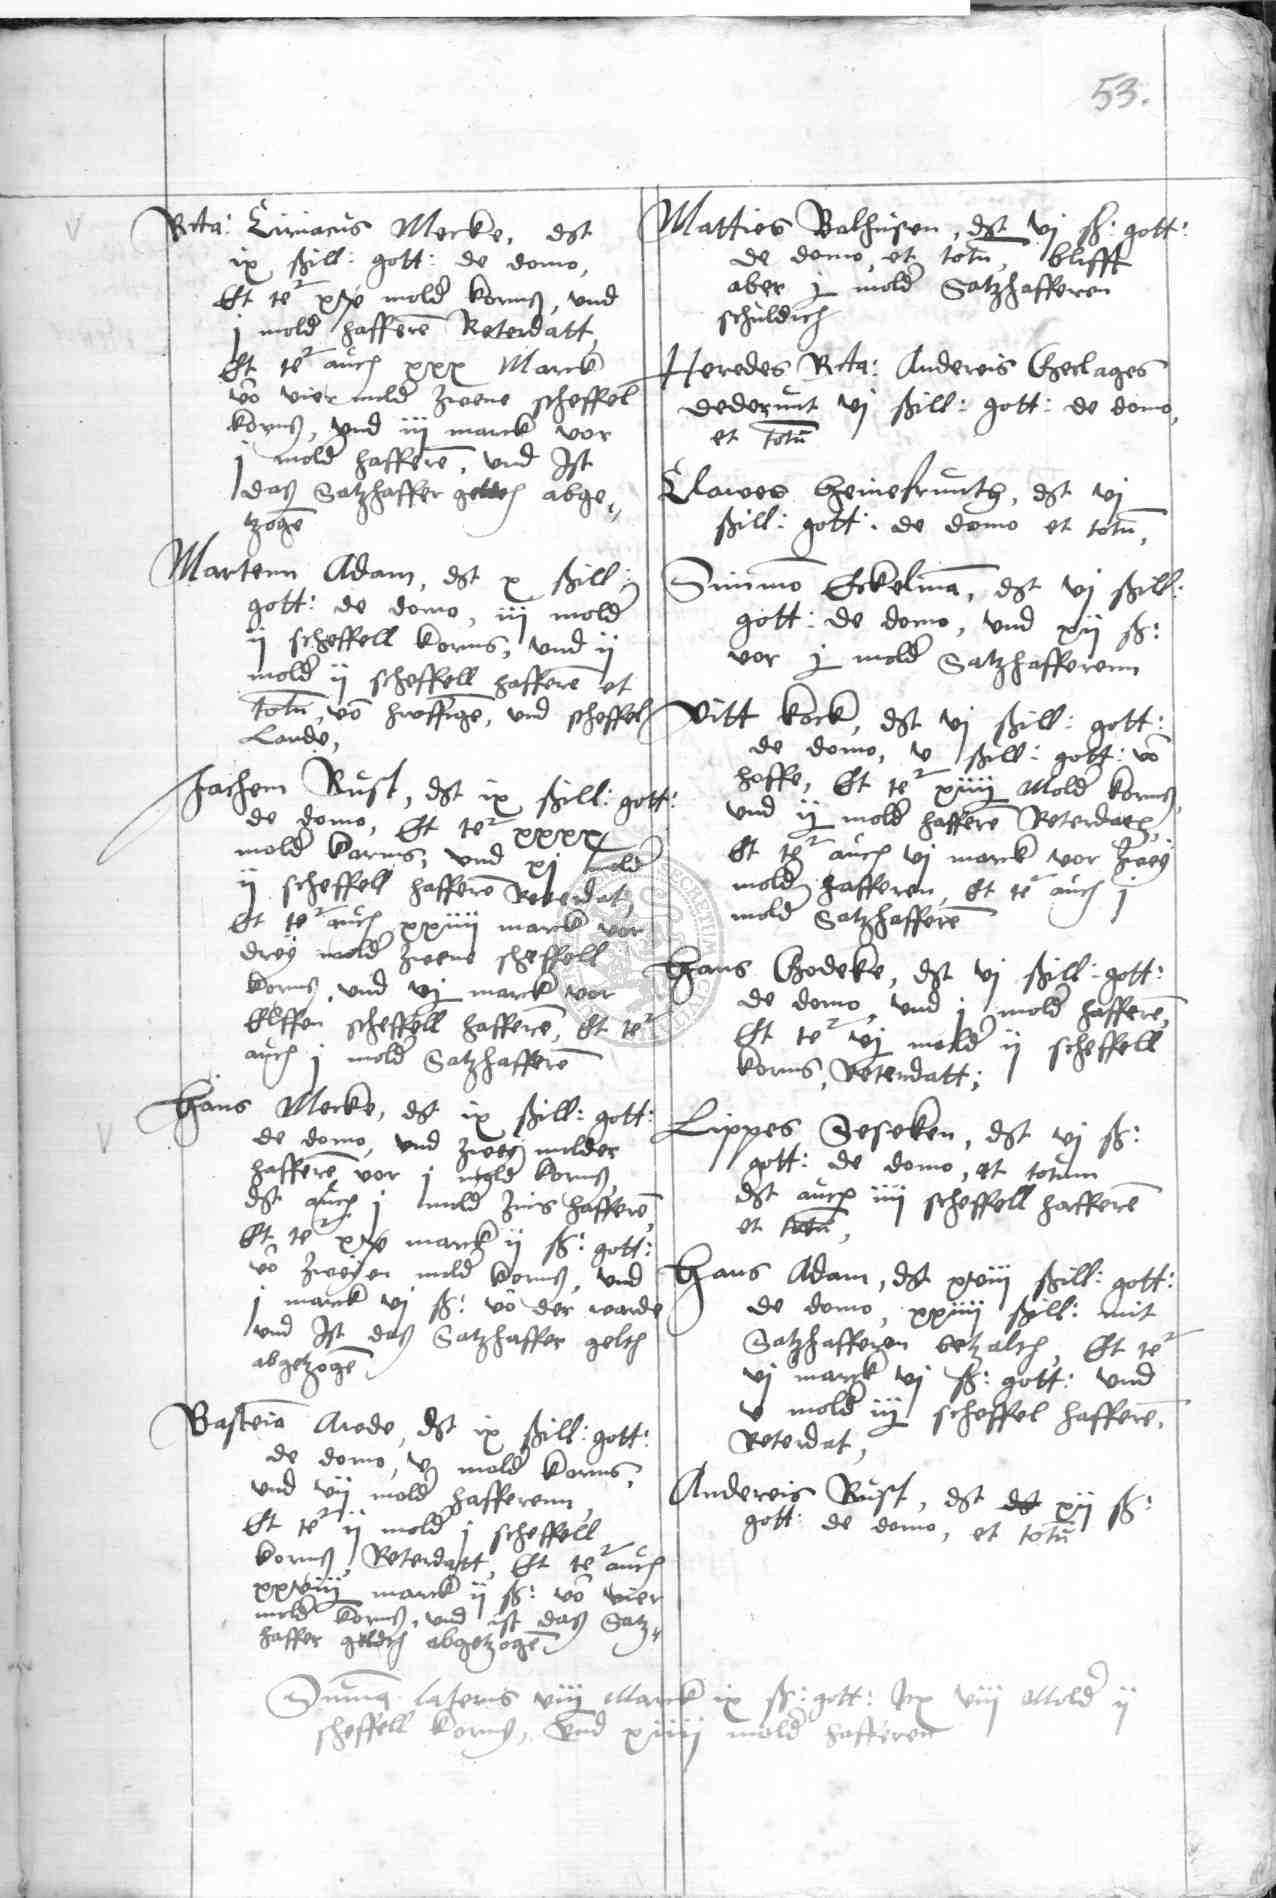 53.
Rcta: Ciriacus Mecke, dst
ix ßill: gott: de domo,
Et te² mold korns, vnd
j mold hafferē Reterdatt,
Et te² auch xxx Marck
vō vier mold zweene scheffel
korns, vnd iij marck vor
j mold hafferē, vnd Ist
das Satzhaffer abge⸗
tzogē
Martenn Adam, dst x ßill:
gott: de domo, iij mold
ij scheffell korns, vnd ij
mold ij scheffell hafferē et
totū, vō vnd scheffel
Lande,
Jachem Rust, dst ix ßill: gott:
de domo, Et te² xxxx
mold korns, vnd xj mold
ij scheffell hafferē Reterdat,
Et te² auch xxiiij marck vor
drey mold zweene scheffell
korns, vnd vj marck vor
Elffen scheffell hafferē, Et te²
auch j mold Satzhafferē
Hans Mecke, dst ix ßill: gott:
de domo, vnd zwey molder
hafferē vor j mold korns,
dst auch j mold zins hafferē,
Et te² marck ij ß: gott:
vō zweyen mold korns, vnd
j marck vj ß: vō der warde
vnd Ist das Satzhaffer gelth
abgetzogē
Basteiā Arede, dst ix ßill: gott:
de domo, v mold korns,
vnd vij mold hafferenn,
Et te² ij mold j scheffell
korns, Reterdatt, Et te² auch
xxviij marck ij ß: vō vier
mold korns, vnd ist das Satz⸗
haffer geldth abgetzogē
Matties Balhusen, dst vj ß: gott:
de domo, et totū, blifft
aber j mold Satzhafferen
schuldich
Heredes Rcta: Andereis Gheclages
dederunt vj ßill: gott: de domo,
et totū
Clawes Heinefrunth, dst vj
ßill: gott: de domo et totū,
Simmō Eckelmā, dst vj ßill:
gott: de domo, vnd xij ß:
vor j mold Satzhafferenn
Vitt Kock, dst vj ßill: gott:
de domo, v ßill: gott: vō
hoffe, Et te² xiiij Mold korns,
vnd ij mold hafferē Reterdatt,
Et te² auch vj marck vor zwey
mold hafferen, Et te² auch j
mold Satzhafferē
Hans Ghodeke, dst vj ßill: gott:
de domo, vnd j mold hafferē,
Et te² vj mold ij scheffell
korns, Reterdatt;
Lippes Seseken, dst vj ß:
gott: de domo, et totum
dst auch iiij scheffell hafferē
et totū,
Hans Adam, dst xviij ßill: gott:
de domo, xxiiij ßill: mit
Satzhafferen betzalth, Et te²
vj marck vj ß: gott: vnd
v mold iij scheffel hafferē,
Reterdat,
Andereis Rust, dst xij ß:
gott: de domo, et totū
Summa lateris viij Marck ix ß: gott: Jtx viij Mold ij
scheffell korns, vnd xiiij mold hafferen